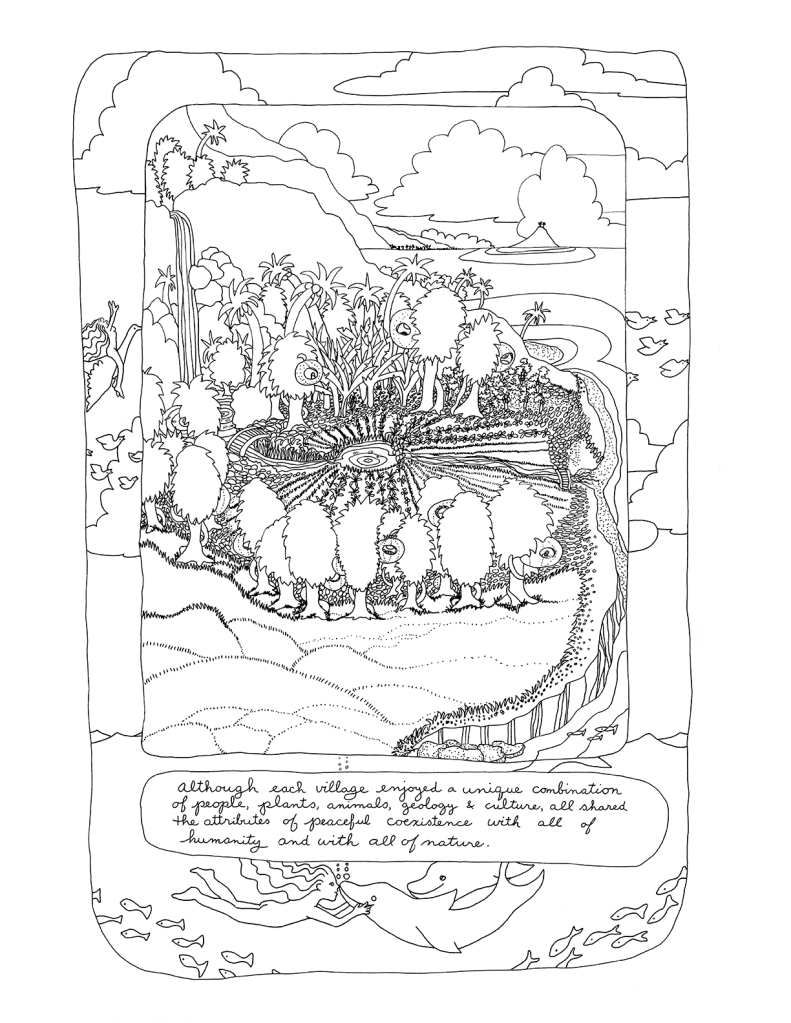 Although each village enjoyed a unique combination
of people, plants, animals, geology & culture, all shared
the attributes of peaceful coexistence with all of
humanity and with all of nature.